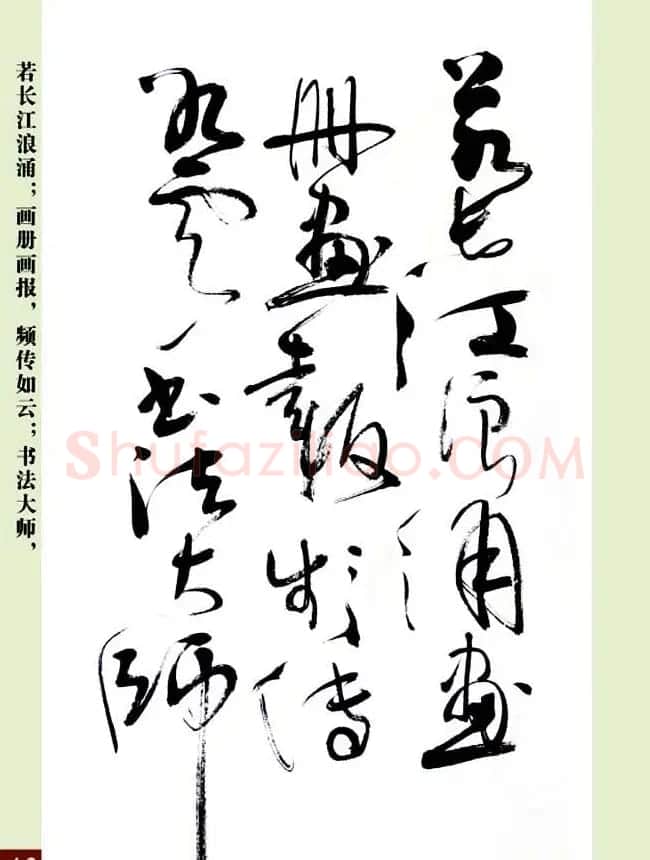 若长江浪涌画
册画报频传
如云书法大师
若长江浪涌；画册画报，频传如云；书法大师，
Shufaziliao.COM